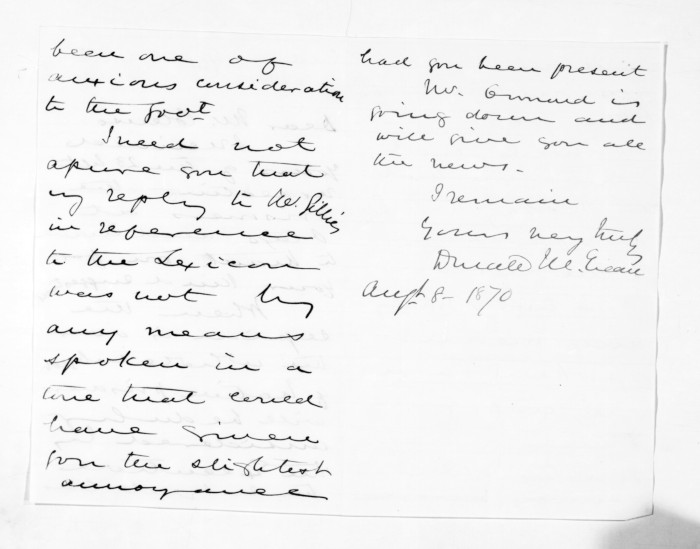 been one of
anxious consideration
to the Govt.
I need not
assure you that
my reply to Mr. Gillies
in reference
to the Lexicon
was not by
any means
spoken in a
tone that could
have given
you the slightest
annoyance
had you been present
Mr. Ormond is
going down and
will give you all
the news.
I remain
Yours very truly
Donald McLean
Augt 8 - 1870